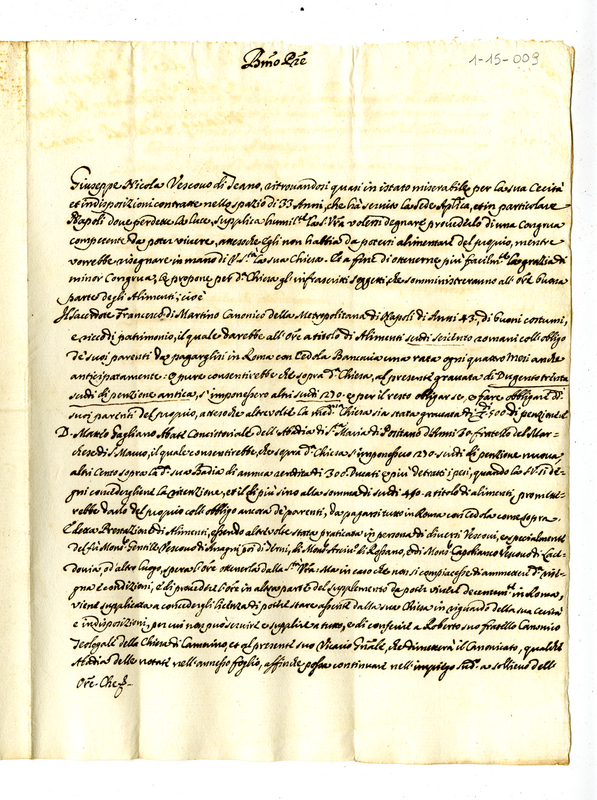 Bmo Pre
1-15-009
Giuseppe Nicola Vescovo di Teano, ritrovandosi quasi in istato miserabile per la sua Cecità
et indisposizioni contratte nello spazio di 33 Anni, che hà servito la Sede Aplica, et in particolare
Napoli dove perdette la luce, supplica humilte la Stà Vra volersi degnare provederlo di una Congrua
competente da poter vivere, atteso che egli non hà tien da potersi alimentare del proprio, mentre
vorrebbe risegnare in mano di V. Stà la sua Chiesa. Et a fine di ottenerne più facilmte la grazia di
minor Congrua, le propone per da Chiesa gl'infrascritti soggetti, che somministreranno all'Ore buona
parte degli Alimenti; cioè
Il Sacerdote Francesco di Martino Canonico della Metropolitana di Napoli di Anni 43, di buoni costumi,
e ricco di patrimonio, il quale darebbe all'Ore a titolo di Alimenti scudi seicento romani coll'obligo
de' suoi parenti da pagarglisi in Roma con Cedola Bancaria una rata ogni quattro Mesi anche
anticipatamente: o pure consentirebbe che sopra da Chiesa, al presente gravata di Dugento trenta
scudi di penzione antica, s'imponessero altri scudi 270. e per il resto obligarse, e fare obligare di
suoi parenti del proprio, atteso che altre volte la ma Chiesa sia stata gravata di 500 di penzione
D. Matteo Gagliano Abate Concistoriale dell'Abadia di Sta Maria di Positano d'Anni 30 fratello del Mar-
chese di Mauro, il quale consentirebbe, che sopra da Chiesa s'imponessero 270 scudi di penzione nuova
altri Cento sopra la da sua Badia di annua rendita di 300 Ducati e più detratti i pesi, quando la S.V. si de-
gni concedergliene la ritenzione, et il di più sino alla somma di scudi 440. a titolo di alimenti, promet-
rebbe darlo del proprio coll'obligo ancora de' parenti, da pagarsi tutto in Roma con Cedola come sopra.
E detta Prestazione di Alimenti, essendo altre volte stata praticata in persona di diversi Vescovi, e specialmente
del fù Monsr Gentile Vescovo di Anagni, poi di Terni, di Monsr di Rossano, e di Monsr Capobianco Vescovo di Lace-
donia, et altro luogo, spera l'Ore ottenerla dalla Stà Vra: Ma in caso che non si compiacesse di ammettere da rise-
gna e condizioni, e di provedere l'Ore in altra parte del supplemento da poter vivere decentemte in Roma,
viene supplicata a concedergli licenza di poter stare assente dalla sua Chiesa in riguardo della sua Cecità
e indisposizioni, per cui non può servire e supplire a tutto, e di conferire a Roberto suo fratello Canonico
Teologale della Chiesa di Camerino, et al presente suo Vicario Gnale, che dimetterà il Canonicato, qualche
Abadia delle notate nell'annesso foglio, affinche possa continuare nell'impiego sudo a sollievo dell'
Ore. Che